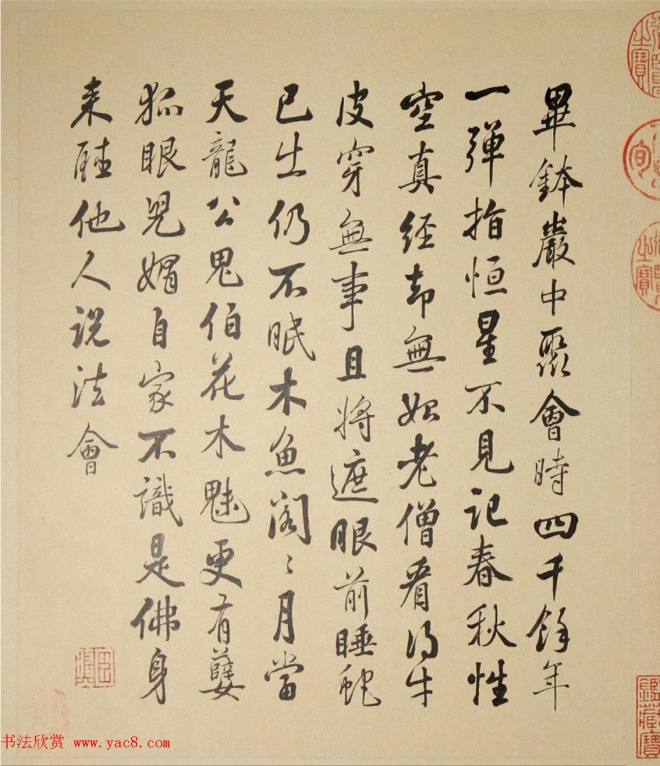 畢鉢巖中聚會時四千餘年
一彈指恒星不見記春秋性
空真經却無始老僧看得牛
皮穿無事且將遮眼前睡蛇
已出仍不眠木魚閣〻月當
天龍公鬼伯花木魅更有孽
狐眼兒媚自家不識是佛身
來聽他人説法會
书法欣赏 www.yac8.com